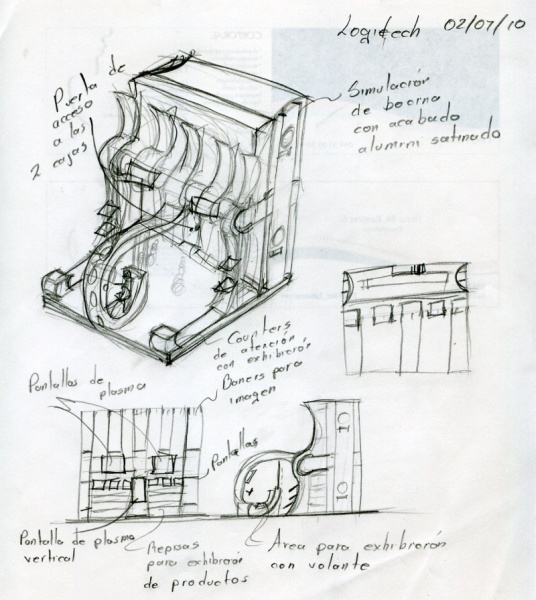 Logitech 02/07/10
Puerta de
acceso
a las
2 cajas
Simulación
de bocina
con acabado
alumini satinado
Counters
de atención
con exhibición
Baners para
imagen
Pantallas de
plasma
Pantallas
Pantalla de plasma
vertical
Repisas
para exhibición
de productos
Area para exhibición
con volante